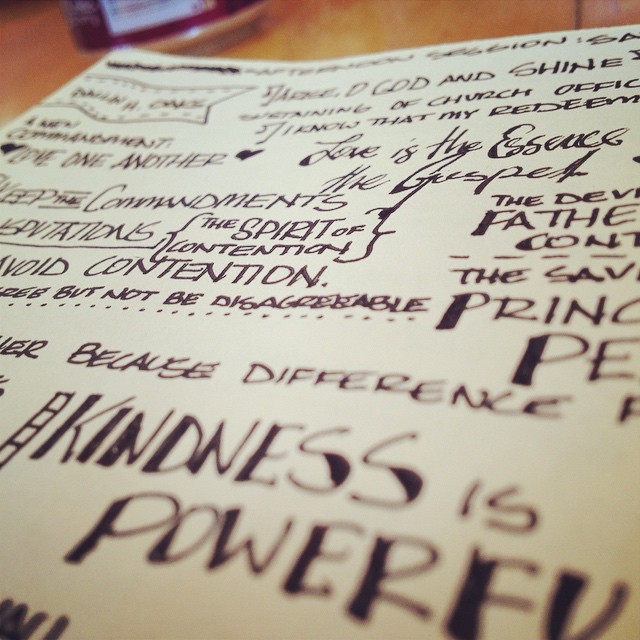 AFTERNOON SESSION: SA
DALLIN H. OAKS
GOD AND SHINE
SUSTAINING OF CHURCH OFFIC
I KNOW THAT MY REDEEM
A NEW
COMMANDMENT:
LOVE ONE ANOTHER
Love is the Essence
the Gospel
KEEP THE COMMANDMENTS
THE SPIRIT OF
CONTENTION
AVOID CONTENTION.
THE DEVI
FATHE
CONT
REE BUT NOT BE DISAGREEABLE
THE SAVI
PRINC
PE
HER BECAUSE DIFFERENCE
KINDNESS IS
POWERFU